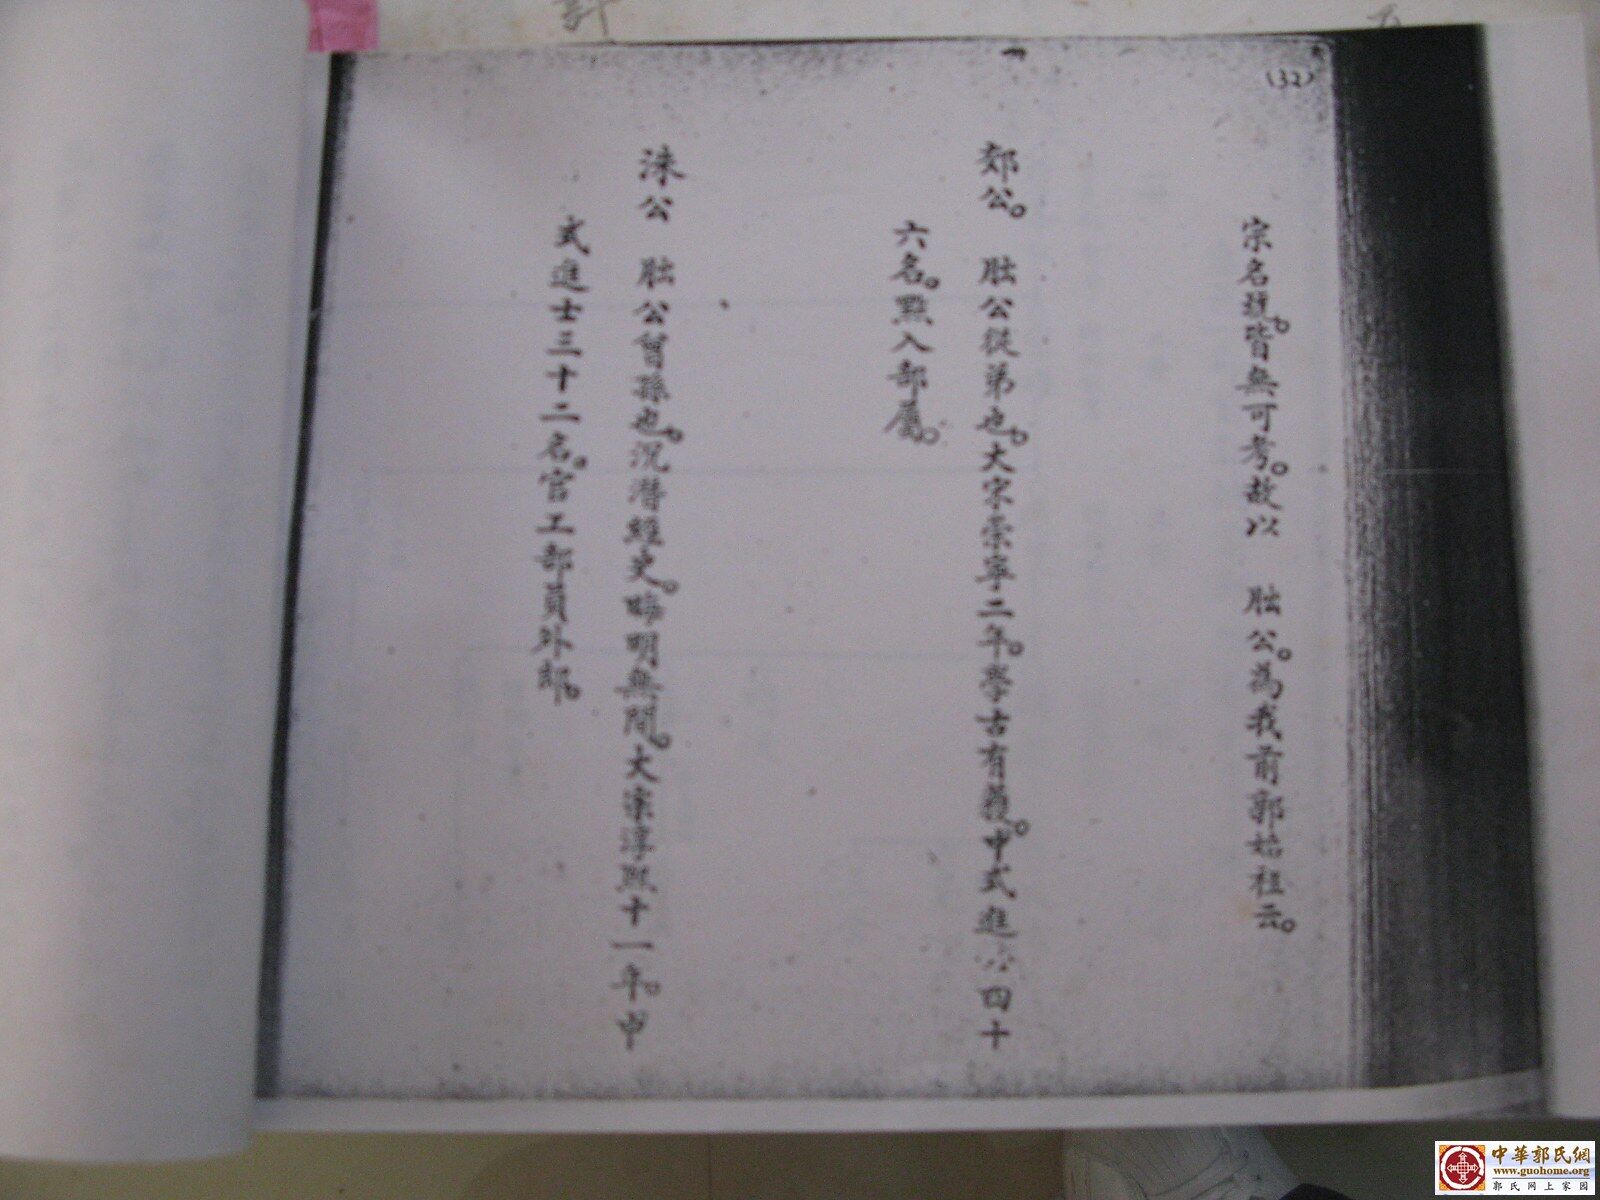 (32)
宗名號。皆無可考。故以　朏公。為我前郭始祖云。
郊公。　朏公從弟也。大宋崇寧二年。學古有獲。中式進　四十
六名。點入部屬。
洙公　朏公曾孫也。沉潛經史。晦明無間。大宋淳熙十一年。中
式進士三十二名。官工部員外郎。
中華郭氏網
www.guohome.org
郭氏网上家园